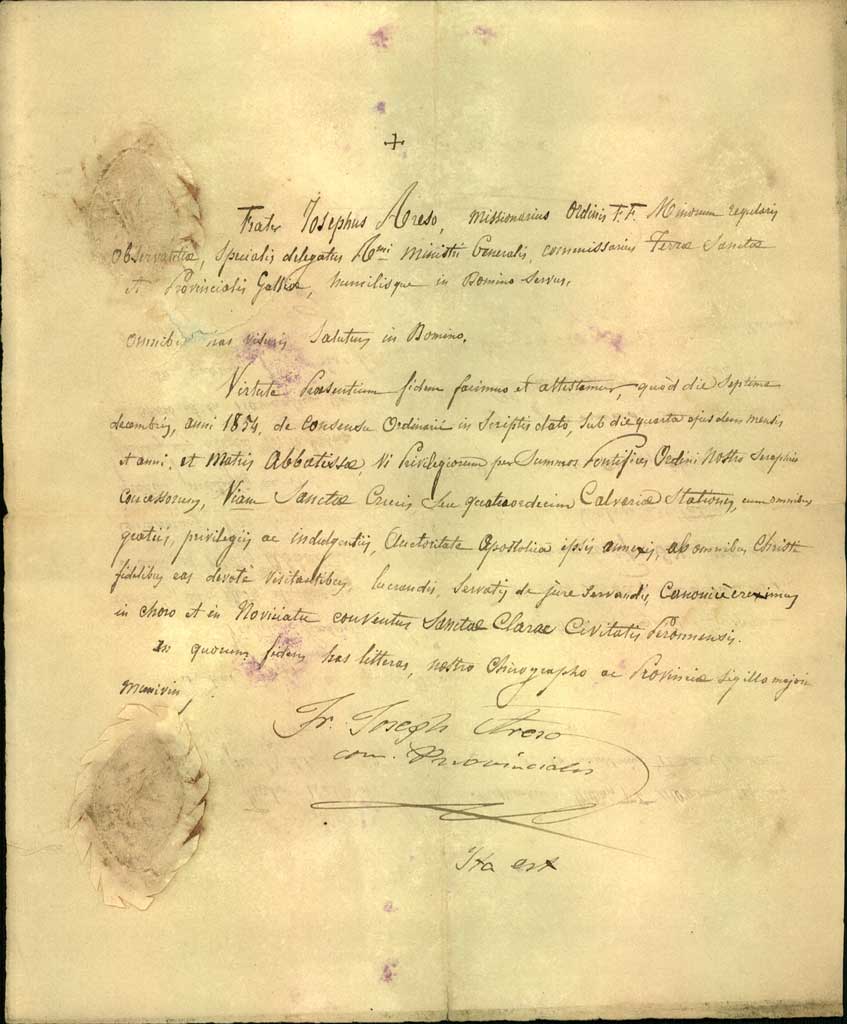 +
Frater Josephus Areso, Missionarius Ordinis F.F. Minorum regularis
Observantiæ, specialis delegatus Rmi Ministri Generalis, commissarius Terræ Sanctæ
et Provincialis Galliæ, humilisque in Domino servus,
Omnibus has visuris Salutem in Domino.
Virtute Præsentium fidem facimus et attestamur, quòd die septima
decembris, anni 1854, de consensu Ordinarii in scriptis dato, sub die quarta ejusdem mensis
et anni, et Matris Abbatissæ, vi Privilegiorum per Summos Pontifices Ordini Nostro Seraphico
concessorum, Viam Sanctæ Crucis seu quatuordecim Calvariæ Stationes, cum omnibus
gratiis, privilegiis ac indulgentiis, Auctoritate Apostolica ipsis annexis, ab omnibus Christi
fidelibus eas devotè visitantibus, lucrandis, servatis de jure servandis, canonicè ereximus
in choro et in Noviciatu conventus Sanctæ Claræ Civitatis Peronnensis.
In quorum fidem has litteras, nostro Chirographo ac Provinciæ sigillo majori
munivimus
Fr. Joseph Areso
com. Provincialis
Ita est